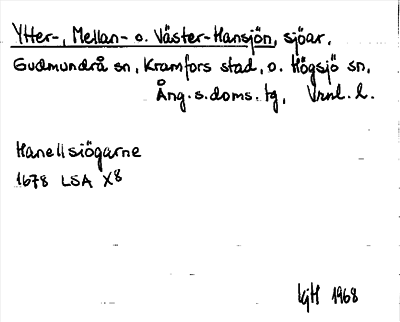 Ytter-, Mellan- o. Väster-Hansjön, sjöar.
Gudmundrå sn, Kramfors stad, o. Högsjö sn,
Ång. s. doms. tg, Vrnl. l.
Hanellsiögarne
1678 LSA X8
KgH 1968